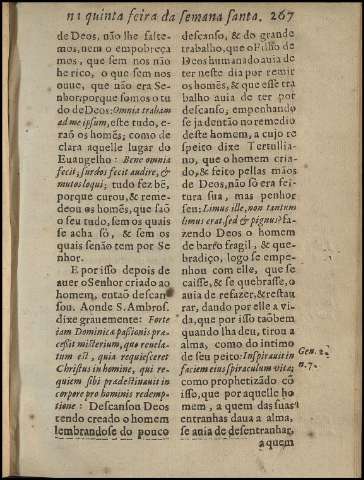 na quinta feira da semana santa. 267
de Deos, não lhe falte-
mos, nem o empobreça
mos, que sem nos não
he rico, o que sem nos
ouue, que não era Se-
nhor, porque somos o tu
do de Deos: Omnia traham
ad me ipsum, este tudo, e-
raõ os homẽs; como de
clara aquelle lugar do
Euangelho: Bene omnia
fecit; surdos fecit audire, &
mutos loqui; tudo fez bẽ,
porque curou, & reme-
deou os homẽs, que saõ
o seu tudo, sem os quais
se acha só, & sem os
quais senão tem por Se
nhor.
E por isso depois de
auer o Senhor criado ao
homem, entaõ descan-
sou. Aonde S. Ambros.
dixe grauemente: Forte
iam Dominicæ passionis præ-
cessit misterium, quo reuela-
tum est, quia requiesceret
Christus in homine, qui re-
quiem sibi prædestinauit in
corpore pro hominis redemp-
tione: Descansou Deos
tendo creado o homem
lembrandose do pouco
descanso, & do grande
trabalho, que o Filho de
Deos humanado auia de
ter neste dia por remir
os homẽs, & que esse tra
balho auia de ter por
descanso; empenhando
se ja dentão no remedio
deste homem, a cujo re
speito dixe Tertullia-
no, que o homem cria-
do, & feito pellas mãos
de Deos, não só era fei-
tura sua, mas penhor
seu: Limus ille, non tantum
limus erat, sed & pignus: fa-
zendo Deos o homem
de barro fragil, & que-
bradiço, logo se empe-
nhou com elle, que se
caisse, & se quebrasse, o
auia de refazer, & restau
rar, dando por elle a vi-
da, que por isso taõbem
quando lha deu, tirou a
alma, como do intimo
de seu peito: Inspirauit in
faciem eius spiraculum vitæ;
como prophetizádo cõ
isso, que por aquelle ho
mem, a quem das suas
entranhas daua a alma,
se auia de desentranhar,
a quem
Gen. 2.
n. 7.